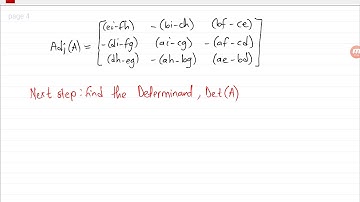 page 4
Adj(A) = [(ei-fh) -(bi-ch) (bf-ce)
-(di-fg) (ai-cg) -(af-cd)
(dh-eg) -(ah-bg) (ae-bd)]
Next step: find the Determinand, Det(A)